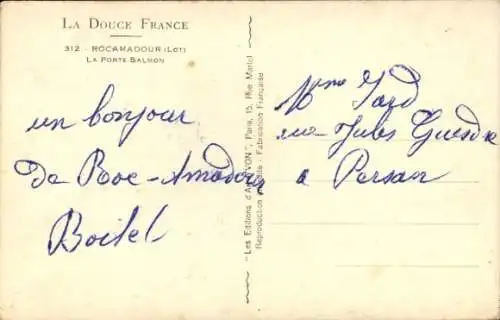 LA DOUCE FRANCE
312 - ROCAMADOUR (LOT)
LA PORTE SALMON
un bonjour
de Roc-Amadour
Boitel
"Les Editions d'Art YVON", Paris, 15, Rue Martel
Reproduction Interdite - Fabrication Française
Mme
rue Jules Guesde
a Persan